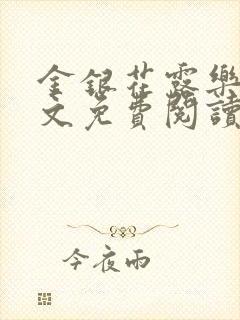 金銀花露樂
文免費閱讀
今夜雨